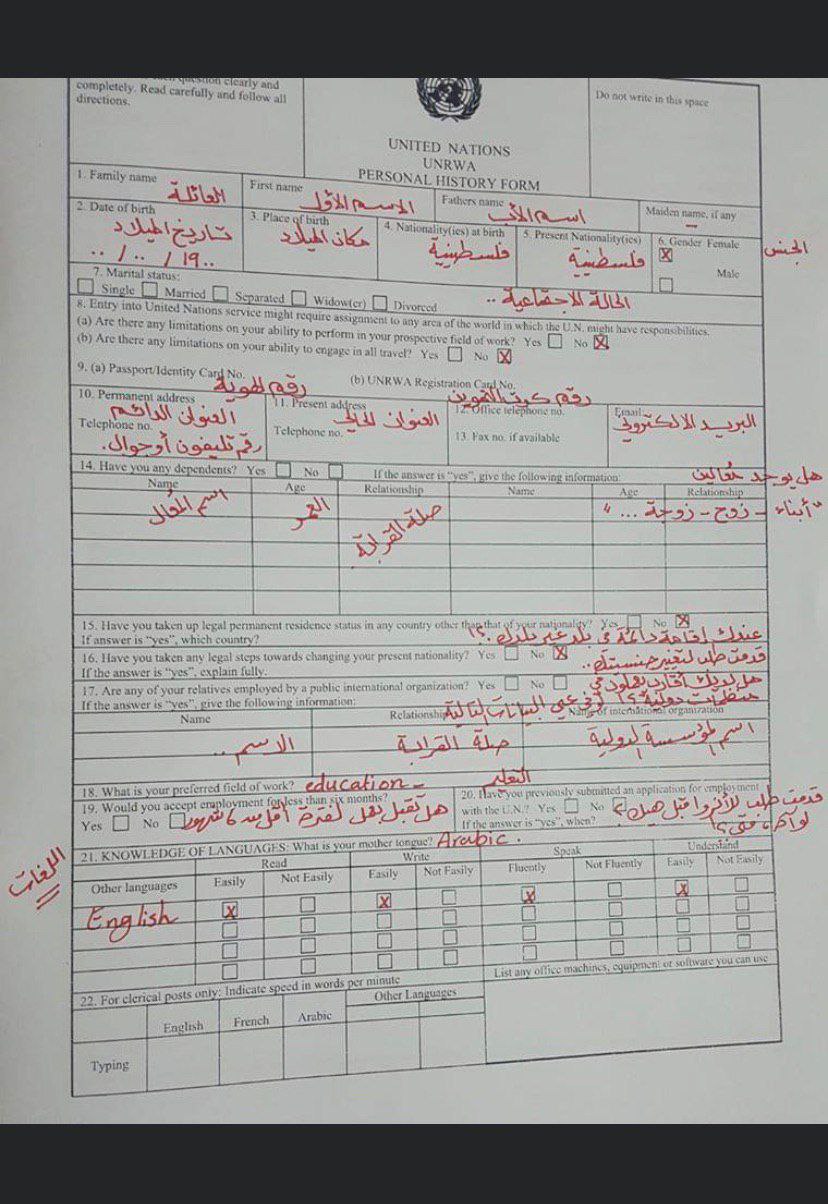 question clearly and
completely. Read carefully and follow all
directions.
UNITED NATIONS
UNRWA
PERSONAL HISTORY FORM
Do not write in this space
1. Family name العائلة
First name الاسم الأول
Fathers name اسم الأب
Maiden name, if any –
2. Date of birth تاريخ الميلاد
.. / .. / 19..
3. Place of birth مكان الميلاد
4. Nationality(ies) at birth فلسطينية
5. Present Nationality(ies) فلسطينية
6. Gender Female X الجنس
Male
7. Marital status:
Single Married Separated Widow(er) Divorced الحالة الاجتماعية ..
8. Entry into United Nations service might require assignment to any area of the world in which the U.N. might have responsibilities.
(a) Are there any limitations on your ability to perform in your prospective field of work? Yes No X
(b) Are there any limitations on your ability to engage in all travel? Yes No X
9. (a) Passport/Identity Card No. رقم الهوية
(b) UNRWA Registration Card No. رقم كرت التموين
10. Permanent address العنوان الدائم
Telephone no. رقم تليفون أو جوال.
11. Present address العنوان الحالي
Telephone no.
12. Office telephone no.
13. Fax no. if available
Email: البريد الالكتروني
14. Have you any dependents? Yes No If the answer is "yes", give the following information: هل يوجد معالين
Name Age Relationship Name Age Relationship
اسم المعال العمر صلة القرابة "أبناء - زوج - زوجة ... "
15. Have you taken up legal permanent residence status in any country other than that of your nationality? Yes No X
If answer is "yes", which country? عندك إقامة دائمة في بلد غير بلدك ؟؟
16. Have you taken any legal steps towards changing your present nationality? Yes No X قدمت طلب لتغيير جنسيتك ..
If the answer is "yes", explain fully.
17. Are any of your relatives employed by a public international organization? Yes No هل لديك أقارب يعملون في
If the answer is "yes", give the following information: منظمات دولية ؟؟ لو في عبي البيانات التالية
Name Relationship Name of international organization
الاسم .. صلة القرابة اسم المؤسسة الدولية
18. What is your preferred field of work? education - التعليم
19. Would you accept employment for less than six months?
Yes No هل تقبل بعمل لفترة أقل من 6 شهور
20. Have you previously submitted an application for employment
with the U.N.? Yes No قدمت طلب للأنروا قبل هيك ؟
If the answer is "yes", when? لو آه، متى ؟؟
21. KNOWLEDGE OF LANGUAGES: What is your mother tongue? Arabic .
اللغات
Read Write Speak Understand
Other languages Easily Not Easily Easily Not Easily Fluently Not Fluently Easily Not Easily
English X X X X
22. For clerical posts only: Indicate speed in words per minute
List any office machines, equipment or software you can use
English French Arabic Other Languages
Typing